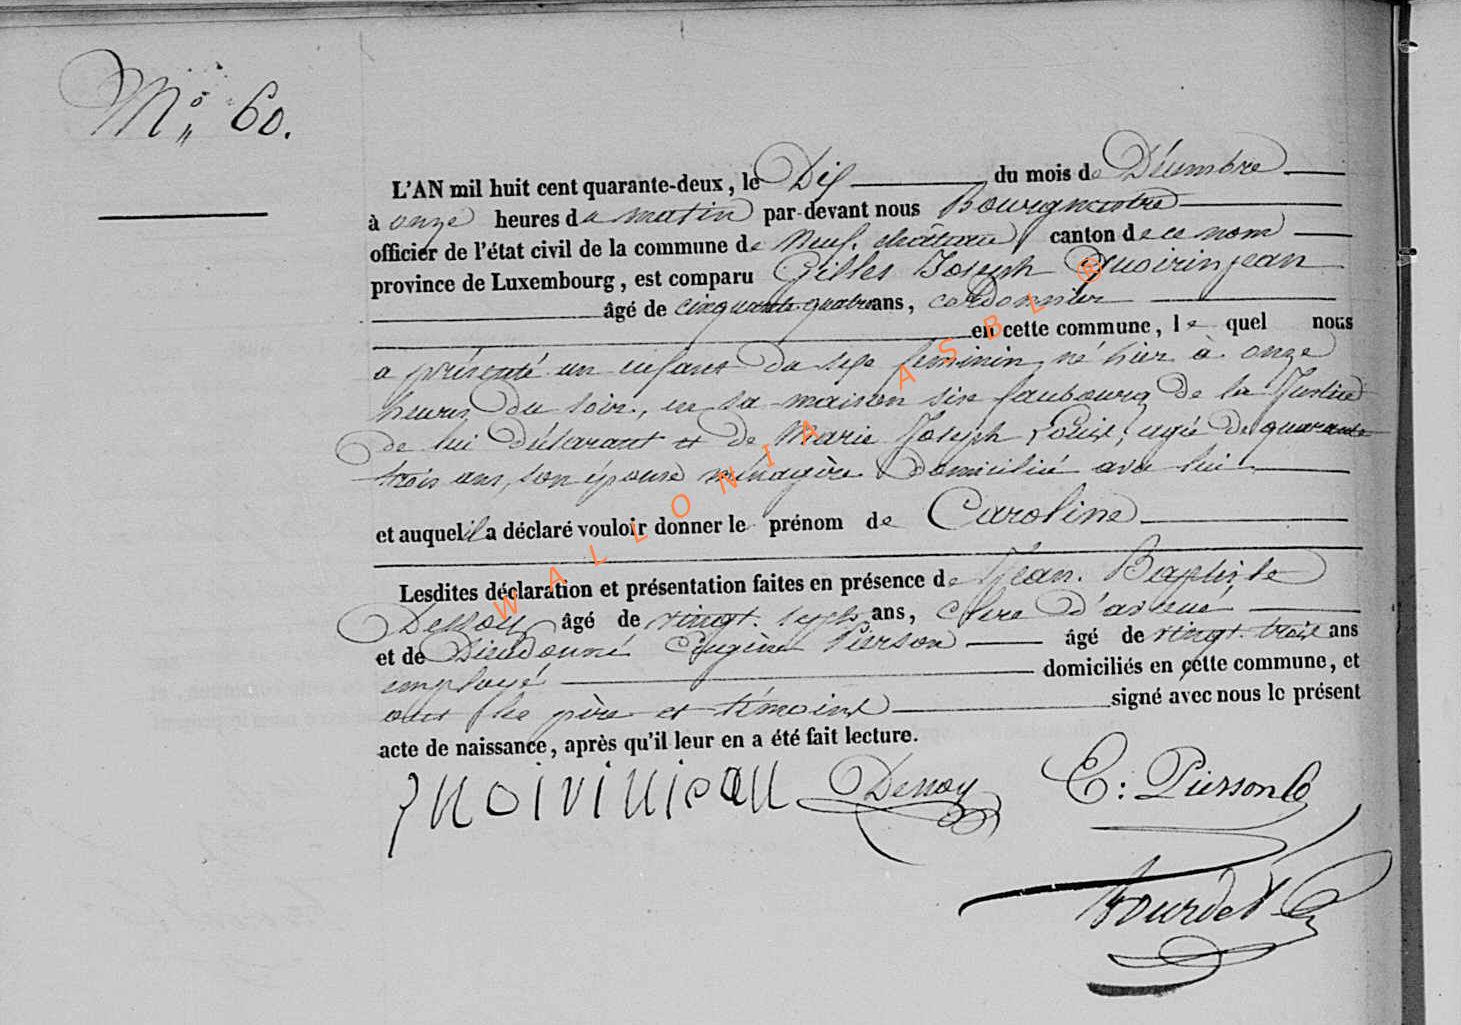 N° 60.
L'AN mil huit cent quarante-deux, le Dix du mois de Décembre
à onze heures du matin par-devant nous Bourgmestre
officier de l'état civil de la commune de Neufchâteau canton de ce nom
province de Luxembourg, est comparu Gilles Joseph Quoirinjean
âgé de cinquante quatre ans, cordonnier
en cette commune, lequel nous
a présenté un enfant du sexe féminin, né hier à onze
heures du soir, en sa maison sise faubourg de la Justice
de lui déclarant et de Marie Joseph Louis, agée de quarante
trois ans, son épouse ménagère domiciliée avec lui
et auquel il a déclaré vouloir donner le prénom de Caroline
Lesdites déclaration et présentation faites en présence de Jean-Baptiste
Dessoy âgé de vingt-sept ans, clerc d'avoué
et de Dieudonné Eugène Pierson âgé de vingt-trois ans
employé domiciliés en cette commune, et
ont les père et témoins signé avec nous le présent
acte de naissance, après qu'il leur en a été fait lecture.
quoirinjean Dessoy E: Pierson
Bourdet
WALLONIA ASBL ®